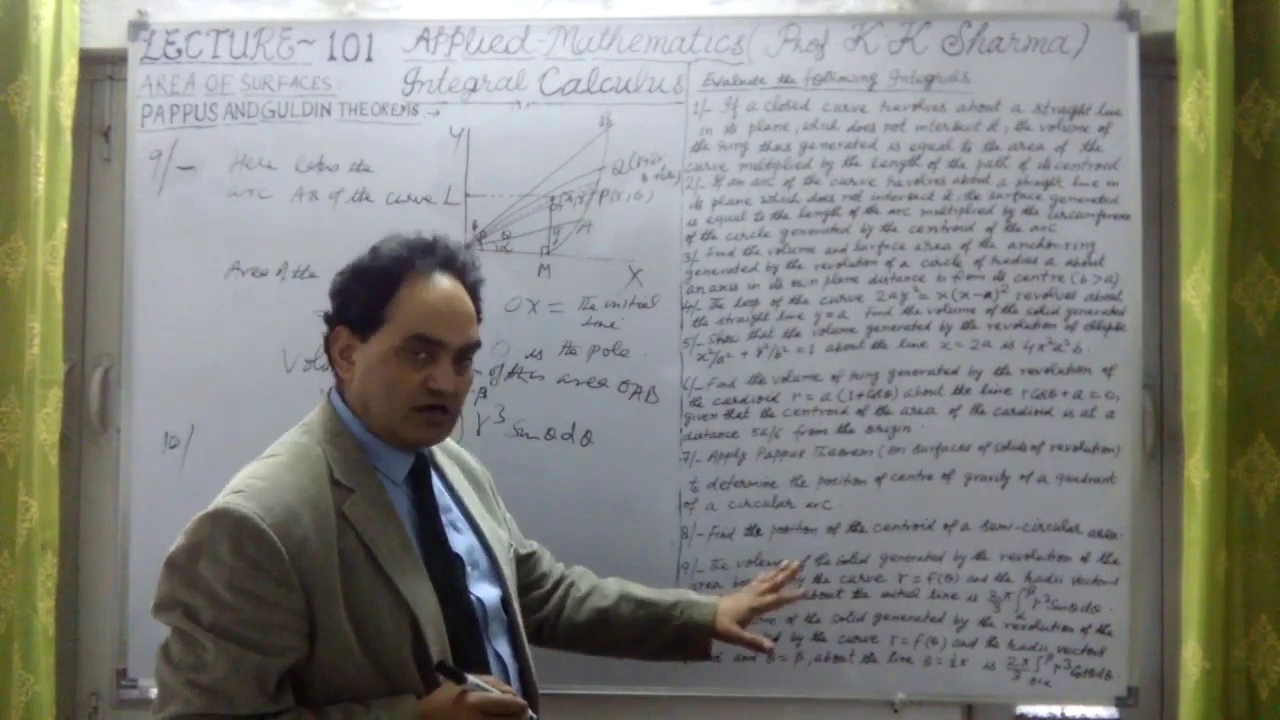 LECTURE~101 Applied-Mathematics (Prof K K Sharma)
AREA OF SURFACES:
Integral Calculus
PAPPUS AND GULDIN THEOREMS →
9/- Here lets the
arc AB of the curve
Area of the
10/
Y
L
P(r,θ)
A
θ
α
M
X
OX = the initial
line
O is the pole.
of this area OAB
β
r³ Sinθdθ
Evaluate the following Integrals
1/- If a closed curve revolves about a straight line
in its plane, which does not intersect it, the volume of
the ring thus generated is equal to the area of the
curve multiplied by the length of the path of its centroid
2/- If an arc of the curve revolves about a straight line in
its plane which does not intersect it, the surface generated
is equal to the length of the arc multiplied by the circumference
of the circle generated by the centroid of the arc
3/- Find the volume and surface area of the anchor-ring
generated by the revolution of a circle of radius a about
an axis in its own plane distance b from its centre (b>a)
4/- The loop of the curve 2ay² = x(x-a)² revolves about
the straight line y=a. Find the volume of the solid generated
5/- Show that the volume generated by the revolution of ellipse
x²/a² + y²/b² = 1 about the line x = 2a is 4π²a²b.
6/- Find the volume of ring generated by the revolution of
the cardioid r = a(1+cosθ) about the line r cosθ + a = 0,
given that the centroid of the area of the cardioid is at a
distance 5a/6 from the origin
7/- Apply Pappus Theorem (on surfaces of solids of revolution)
to determine the position of centre of gravity of a quadrant
of a circular arc.
8/- Find the position of the centroid of a semi-circular area.
9/- The volume of the solid generated by the revolution of the
area by the curve r = f(θ) and the radii vectors
about the initial line is 2/3 π ∫αβ r³Sinθdθ.
of the solid generated by the revolution of the
by the curve r = f(θ) and the radii vectors
and θ = β, about the line θ = ½π is 2π/3 ∫θ=αβ r³cosθdθ.